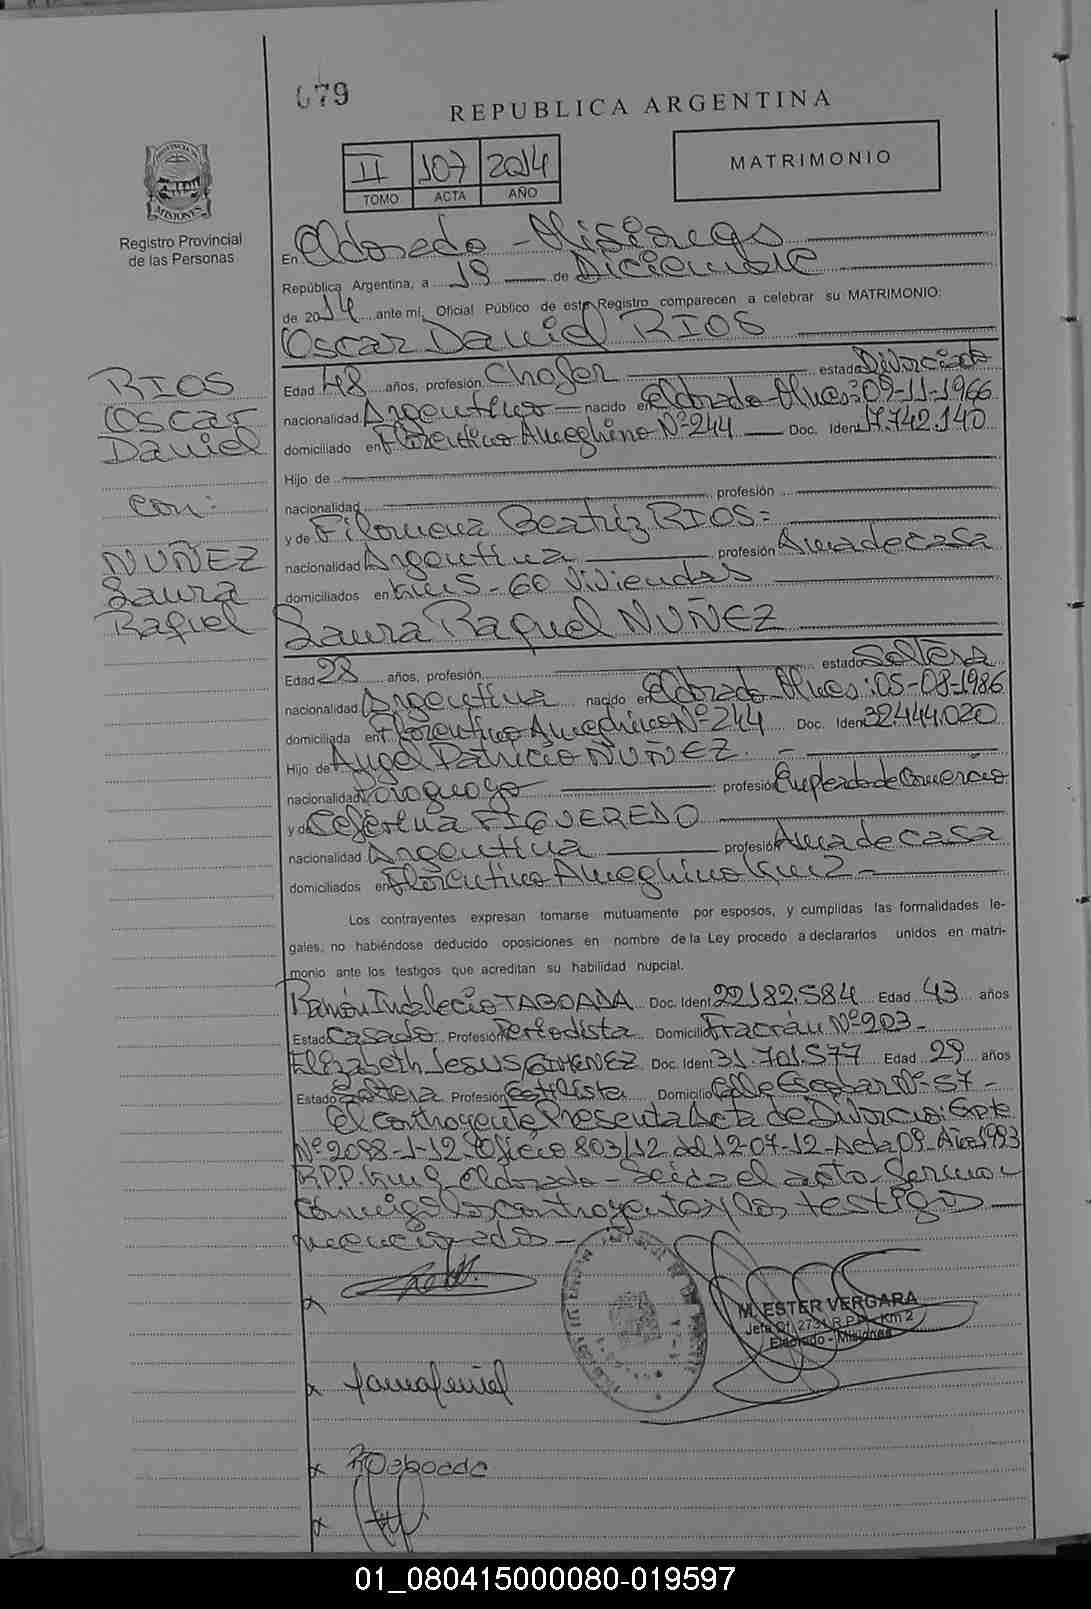 079
REPUBLICA ARGENTINA
II 107 2014
TOMO ACTA AÑO
MATRIMONIO
PROVINCIA DE MISIONES
Registro Provincial
de las Personas
En Eldorado - Misiones
República Argentina, a 19 de Diciembre
de 2014 ante mí, Oficial Público de este Registro comparecen a celebrar su MATRIMONIO:
Oscar Daniel RIOS
Edad 48 años, profesión Chofer estado Divorciado
nacionalidad Argentino nacido en Eldorado Mnes: 09-11-1966
domiciliado en Florentino Ameghino Nº 244 Doc. Iden 17.742.140
Hijo de
nacionalidad profesión
y de Filomena Beatriz RIOS=
nacionalidad Argentina profesión Ama de casa
domiciliados en Km 5 - 60 Viviendas
Laura Raquel NUÑEZ
Edad 28 años, profesión estado Soltera
nacionalidad Argentina nacido en Eldorado Mnes: 05-08-1986
domiciliada en Florentino Ameghino Nº 244 Doc. Iden 32.444.020
Hijo de Angel Patricio NUÑEZ. -
nacionalidad Paraguayo profesión Empleado de Comercio
y de Ceferina FIGUEREDO
nacionalidad Argentina profesión Ama de casa
domiciliados en Florentino Ameghino Km 2 -
Los contrayentes expresan tomarse mutuamente por esposos, y cumplidas las formalidades le-
gales; no habiéndose deducido oposiciones en nombre de la Ley procedo a declararlos unidos en matri-
monio ante los testigos que acreditan su habilidad nupcial.
Ramón Indalecio TABOADA Doc. Ident 22.182.584 Edad 43 años
Estado Casado Profesión Periodista Domicilio Fracrán Nº 203 -
Elizabeth Jesus GIMENEZ Doc. Ident 31.701.577 Edad 29 años
Estado Soltera Profesión Estilista Domicilio Calle Escobar Nº 57 -
El contrayente Presenta Acta de Divorcio: Expte
Nº 2098-1-12 Oficio 803/12 del 12-07-12 - Acta 09 Año 1993
R.P.P. Km 9 Eldorado - Leída el acta - Firman
conmigo los contrayentes y los testigos
mencionados -
RIOS
Oscar
Daniel
con:
NUÑEZ
Laura
Raquel
M. ESTER VERGARA
Jefa Of. 2731 R.P.P. - Km 2
Eldorado - Misiones
x
x
x RTaboada
x
01_080415000080-019597